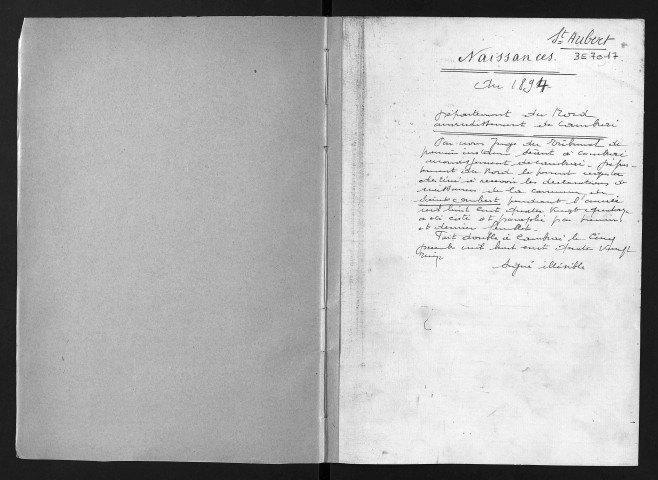 St Aubert
3E7017
Naissances
du 1894
département du Nord
arrondissement de Cambrai
Par nous Juge du Tribunal de
première instance séant à Cambrai
arrondissement de Cambrai. Dépar-
tement du Nord le présent registre
destiné à recevoir les déclarations de
naissances de la commune de
Saint aubert pendant l'année
mil huit cent quatre vingt quatorze
a été coté et paraphé par premier
et dernier feuillet.
Fait double à Cambrai le Cinq
mil huit cent quatre vingt
Signé illisible